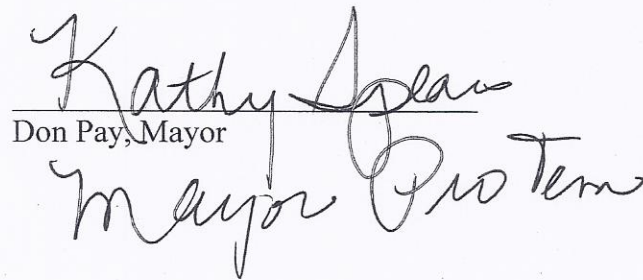 Kathy Spears
Don Pay, Mayor
Mayor Pro Tem